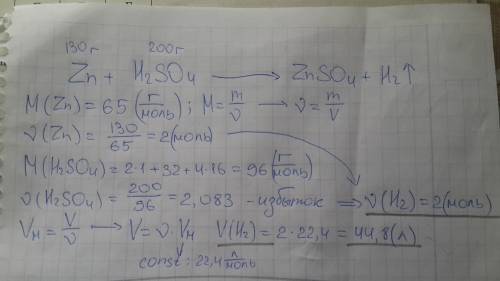 130г 200г
Zn + H₂SO₄ ⟶ ZnSO₄ + H₂↑
M(Zn) = 65 (г/моль); M = m/ν ⟶ ν = m/V
ν(Zn) = 130/65 = 2(моль)
M(H₂SO₄) = 2·1+32+4·16 = 96(г/моль)
ν(H₂SO₄) = 200/96 = 2,083 - избыток ⟹ ν(H₂) = 2(моль)
Vм = V/ν ⟶ V = ν·Vм V(H₂) = 2·22,4 = 44,8(л)
const: 22,4 л/моль